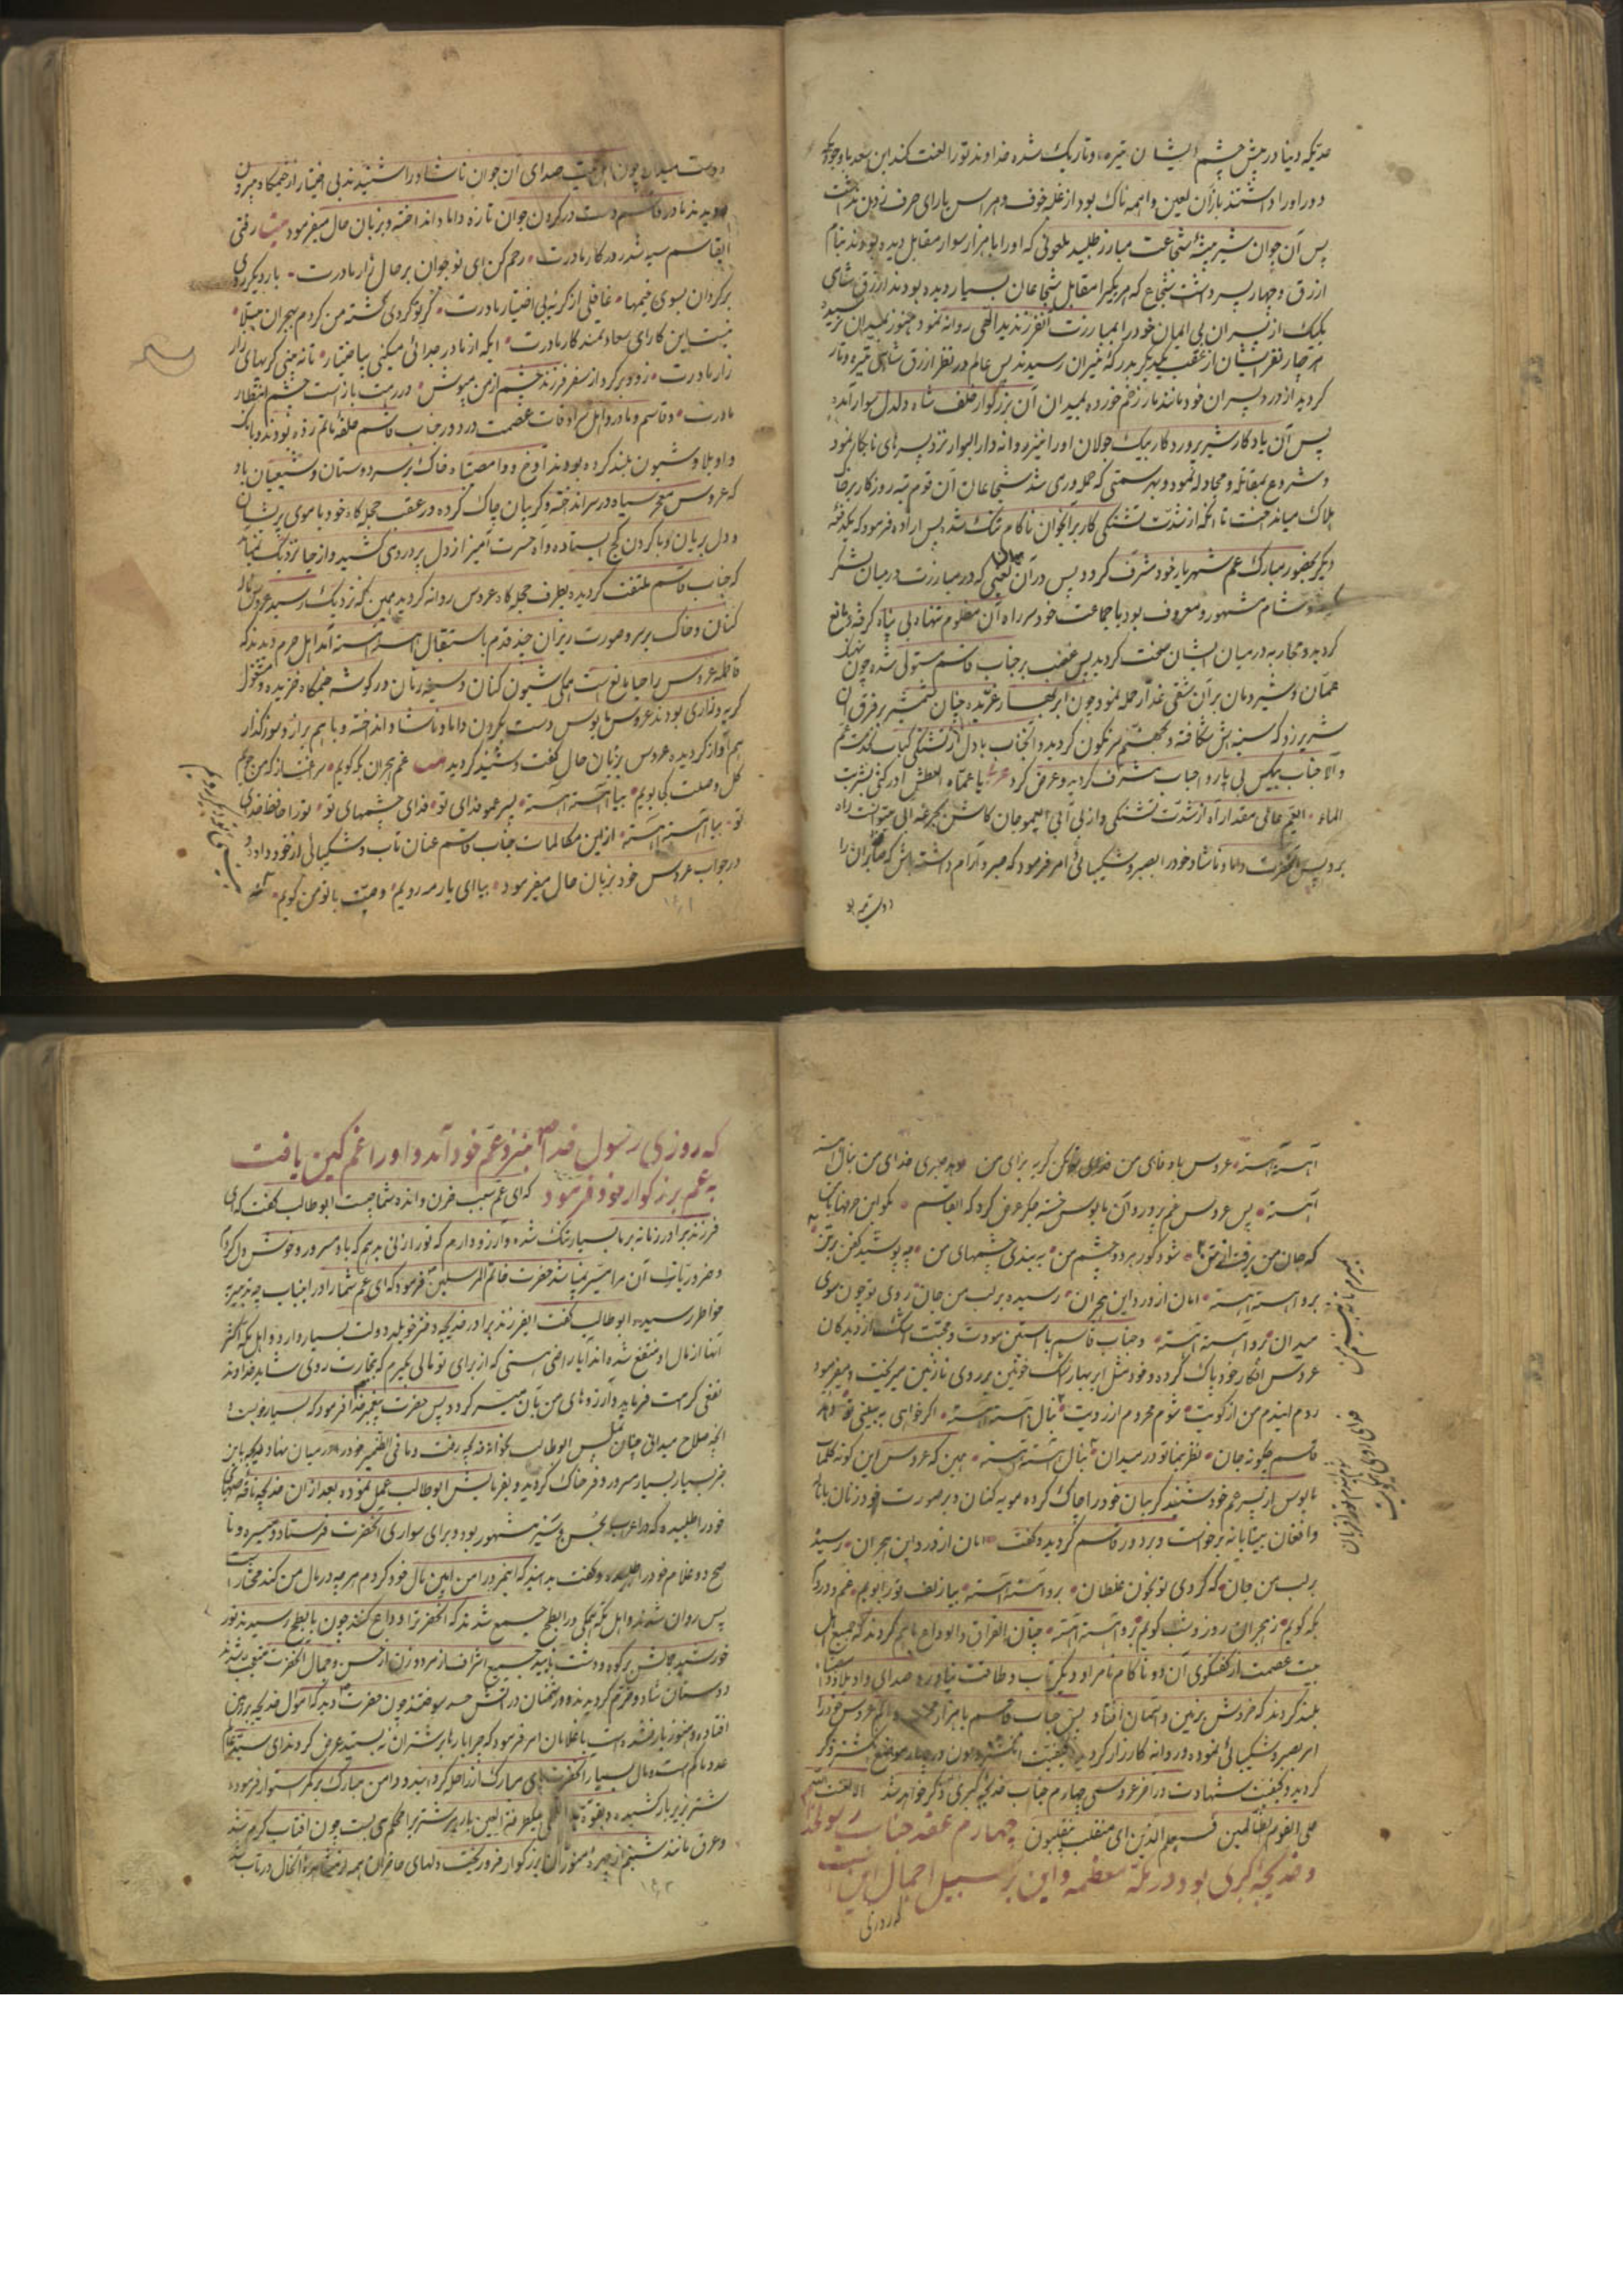 دنیا در پیش چشم ایشان تیره و تاریک شده خداوند تو را لعنت کند ابن سعد با وجود
دور او را داشتند از آن لعین واهمه ناک بود از غلبه خوف و هراس یارای حرف زدن نداشت
پس آن جوان شیر بیشه شجاعت مبارز طلبید ملعونی که او را با هزار سوار مقابل دیده بودند بنام
ازرق و چهار پسر داشت شجاع که هر یک را مقابل شجاعان بسیار دیده بودند ازرق شامی
یک یک از پسران بی ایمان خود را بمبارزت آنفرزند ید اللهی روانه نمود هنوز بمیدان نرسیده
هر چهار نفر ایشان از عقب یکدیگر بدرک نیران رسیدند پس عالم در نظر ازرق شامی تیره و تار
گردید از درد پسران خود مانند مار زخم خورده بمیدان آن بزرگوار خلف شاه دلدل سوار آمد
پس آن یادگار شیر پروردگار بیک جولان او را نیز روانه دار البوار نزد پسرهای نابکار نمود
و شروع بمقاتله و مجادله نمود و بهر سمتی که حمله وری شد شجاعان آن قوم تبه روزگار بر خاک
هلاک میانداخت تا آنکه از شدت تشنگی کار بر آنجوان ناکام تنگ شد پس اراده فرمود که یکدفعه
دیگر بحضور مبارک عم شهریار خود مشرف گردد پس در آن میان لعینی که در مبارزت در میان لشکر
شام مشهور و معروف بود با جماعت خود سر راه آن مظلوم تنهاء بی پناه گرفته و مانع
گردید و محاربه در میان ایشان سخت گردید پس غضب بر جناب قاسم مستولی شده چون
عمان و شیر دمان بر آن شقی غدار حمله نمود و چون ابر بهار غریده چنان شمشیر بر فرق آن
شریر زد که سینه اش شکافته و بجهنم سرنگون گردید و آنجناب با دل از تشنگی کباب بخدمت عم
والا جناب بیکس بی یار و احباب مشرف گردید و عرض کرد یا عماه العطش ادرکنی بشربت
الماء ای عم عالی مقدار آه از شدت تشنگی و از بی آبی ای عمو جان کاش بجرعه آبی
برد پس آنحضرت داماد ناشاد خود را بصبر و شکیبائی امر فرمود که صبر و آرام داشته باش که صابران را
دوست
دوست میدارد چون اهل بیت صدای آن جوان ناشاد را شنیدند بی اختیار از خیمگاه بیرون
دویدند مادر قاسم دست در گردن جوان تازه داماد انداخته و بزبان حال میفرمود رفتی
ایقاسم سیه شد روزگار مادرت رحم کن ای نوجوان بر حال زار مادرت بار دیگر روی
برگردان بسوی خیمها غافلی از گریه بی اختیار مادرت گر تو گردی کشته من گردم بهجران مبتلا
نیست این کار ای سعادتمند کار مادرت ایکه از مادر جدائی میکنی بی اختیار تا نه بینی گریهای زار
زار مادرت زود برگرد از سفر فرزند چشم از من مپوش در رهت باز است چشم انتظار
مادرت و قاسم و مادر و اهل سرادقات عصمت در دور جناب قاسم حلقه ماتم زده بودند و بانک
واویلا و شیون بلند کرده بودند آوخ و وا مصیبتاه خاک بر سر دوستان و شیعیان باد
که عروس معجر سیاه در سر انداخته و گریبان چاک کرده در عقب حجله گاه خود با موی پریشان
و دل بریان و با گردن کج ایستاده و آه حسرت آمیز از دل پر درد می کشید و از حیا نزدیک نمیامد
که جناب قاسم ملتفت گردیده بطرف حجله گاه عروس روانه گردید همین که نزدیک رسید عروس ناله
کنان و خاک بر سر و صورت ریزان چند قدم باستقبال آهسته آهسته آمد اهل حرم دیدند که
فاطمه عروس را حیا مانع است همگی شیون کنان و سینه زنان در گوشه خیمگاه خزیده و مشغول
گریه و زاری بودند عروس مایوس دست بگردن داماد ناشاد انداخته و با هم براز و سوز گداز
هم آواز گردیده عروس بزبان حال گفت و شنید گردید غم هجران بکه گویم
گل وصلت کجا بویم بیا آهسته آهسته پسر عمو فدای تو فدای چشمهای تو تو را حافظ خدای
تو بیا آهسته آهسته از این مکالمات جناب قاسم عنان تاب و شکیبائی از خود داده و
در جواب عروس خود بزبان حال میفرمود بیا ای یار مه رویم وصیت با تو من گویم
آهسته آهسته عروس با وفای من مکن گریه برای من فدای من بنال آهسته
آهسته پس عروس غم پرور و آن مایوس خسته جگر عرض کرد که ایقاسم مگو این حرفها با من
که جان من برفت از تن شود کور هر دو چشم من به بندی چشمهای من چه پوشیدی کفن بر تن
برو آهسته آهسته امان از درد این هجران رسیده بر لب من جان روی تو چون سوی
میدان برو آهسته آهسته و جناب قاسم با آستین مودت و محبت اشک از دیدگان
عروس افکار خود پاک کرده و خود مثل ابر بهار اشک خونین بر روی نازنین میریخت و میفرمود
روم ایندم من از کویت شوم محروم از رویت بنال آهسته آهسته اگر خواهی به بینی تو
قاسم چگونه جان نظر بنما تو در میدان بنال آهسته آهسته همین که عروس این گونه کلمات
مایوس از پسر عم خود شنید گریبان خود را چاک کرده مویه کنان و بر صورت خود زنان با ناله
و افغان بیتابانه برخواست و بر دور قاسم گردید و گفت امان از درد این هجران رسیده
بر لب من جان که گردی تو بخون غلطان برو آهسته آهسته بیا زلف تو را بویم غم و دردت
بکه گویم ز هجران روز و شب گویم برو آهسته آهسته چنان الفراق و الوداع با هم کردند که جمیع اهل
بیت عصمت از گفتگوی آن دو ناکام نامراد دیگر تاب و طاقت نیاورده صدای واویلا
بلند کردند که خروش بزمین و آسمان افتاد پس جناب قاسم با هزار عروس خود را
امر بصبر و شکیبائی نموده و روانه کارزار گردید
گردید و کیفیت شهادت در آخر عروسی چهارم جناب خدیجه کبری ذکر خواهد شد الا لعنت الله
علی القوم الظالمین فسیعلم الذین ای منقلب ینقلبون چهارم عقد جناب رسولخدا
و خدیجه کبری بود در مکه معظمه و این بر سبیل اجمال این است
که روزی
که روزی رسول خدا بنزد عم خود آمد و او را غمگین یافت
به عم بزرگوار خود فرمود که ای عم سبب حزن و اندوه شما چیست ابوطالب گفت که ای
فرزند برادر زمانه بر ما بسیار تنگ شده و آرزو دارم که تو را زنی بدهم که باو مسرور و خوش دل گردی
و ضروریات آن مرا میسر نیست حضرت خاتم المرسلین فرمود که ای عم شما را در اینباب چه چیز
بخواطر رسیده ابوطالب گفت ایفرزند برادر خدیجه دختر خویلد دولت بسیار دارد و اهل مکه اکثر
آنها از مال او منتفع شده اند آیا راضی هستی که از برای تو مالی بگیرم که بتجارت روی شاید خداوند
نفعی کرامت فرماید و آرزوهای من بآن میسر گردد پس حضرت پیغمبر خدا فرمود که بسیار خوبست
آنچه صلاح میدانی چنان کن پس ابوطالب بخانه خدیجه رفت و ما فی الضمیر خود را در میان نهاد خدیجه باین
خبر بسیار بسیار مسرور و فرحناک گردید و بفرمایش ابوطالب عمل نموده بعد از آن خدیجه ناقه صهبای
خود را طلبیده که در اعراب مشهور بود و برای سواری آنحضرت فرستاد و میسره و نا
صح دو غلام خود را طلبیده و گفت بدانید که اینمرد را من امین مال خود کردم هر چه در مال من کند مختار است
پس روان شدند و اهل مکه همگی در ابطح جمع شدند که آنحضرت را وداع کنند چون بابطح رسیدند نور
خورشید جمالش بر کوه و دشت تابید جمیع اشراف از مرد و زن از حسن و جمال آنحضرت متعجب شدند
دوستان شاد و خرم گردیدند و دشمنان در آتش حسد سوختند چون حضرت دید که اموال خدیجه بر زمین
افتاده و هنوز بار نشده است با غلامان امر فرمود که چرا بارها بر شتران نه بستید عرض کردند ای سید عالم
عدد ما کم است و مال بسیار آنحضرت پای مبارک از راحله گردانید و دامن مبارک بر کمر استوار فرمود
شتر بزیر بار کشیده و بقوت الهی بیکطرفة العین بار بر شتر برا محکم می بست چون آفتاب گرم شد
و عرق مانند شبنم از چهره منور آن بزرگوار فرو ریخت دلهای حاضران همه از مشاهده آنحال در تاب شد